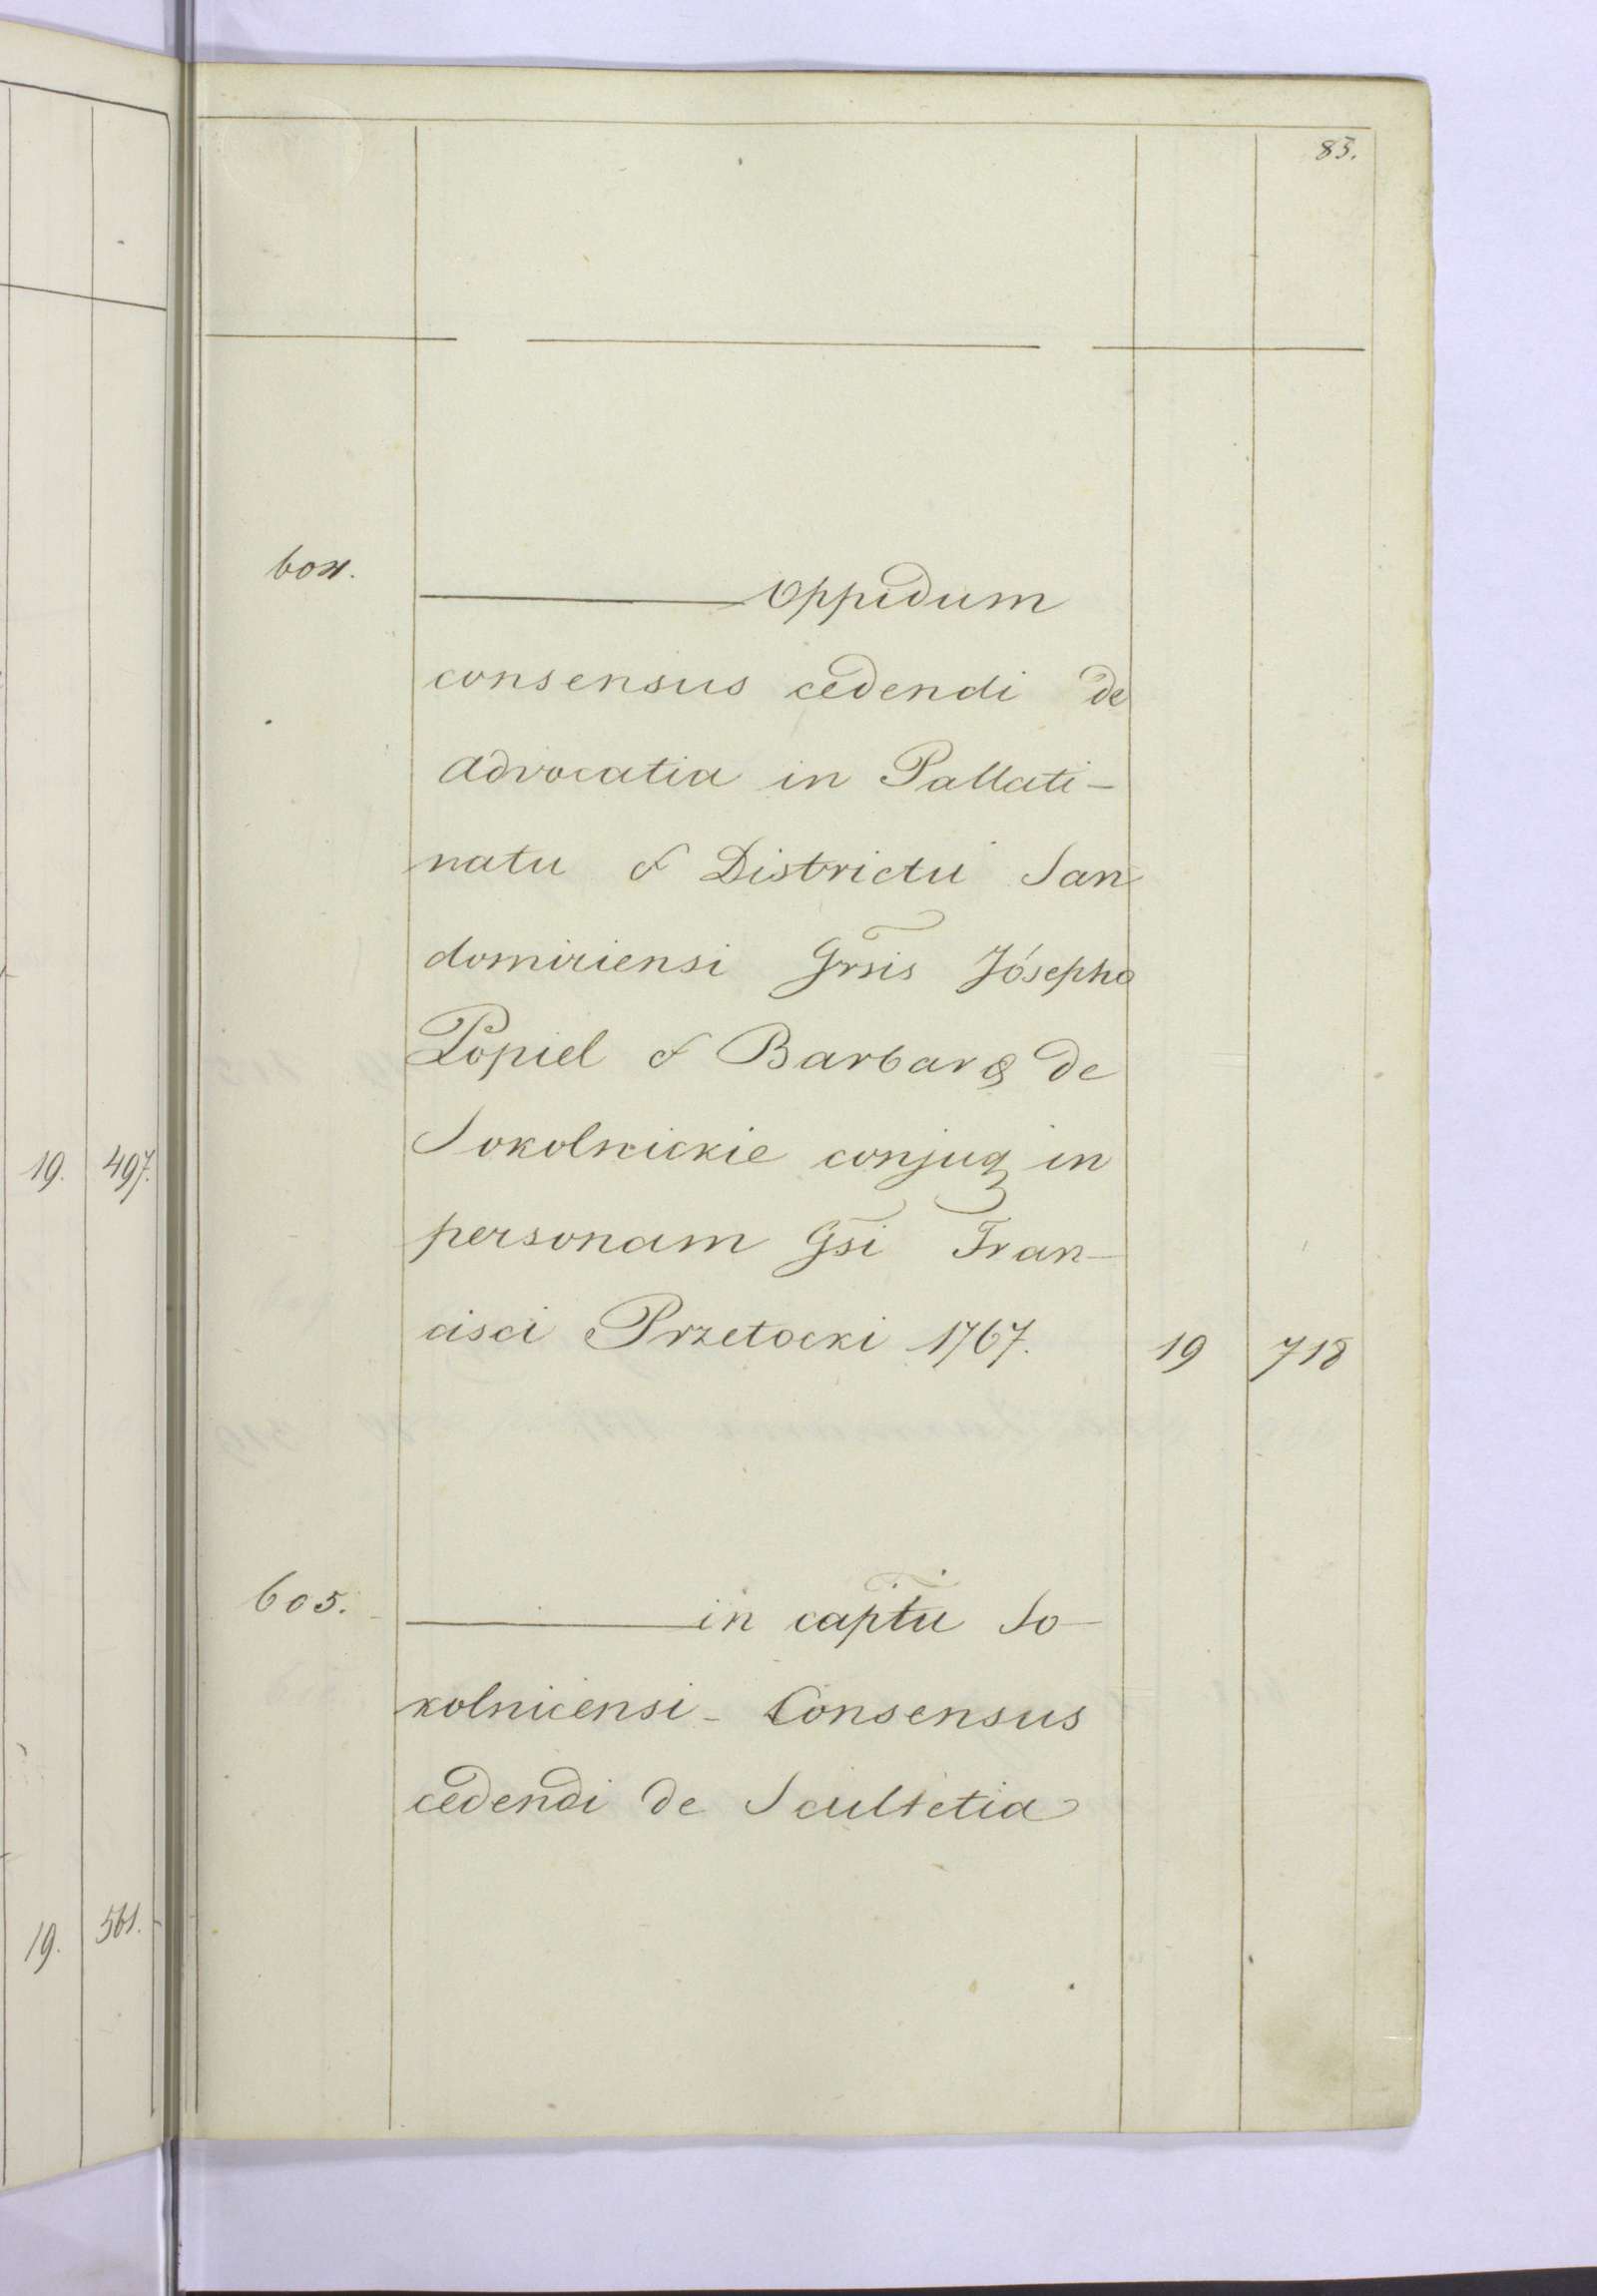 85.
604.
Oppidum
consensus cedendi de
advocatia in Pallati-
natu & Districtu San
domiriensi Grsis Jósepho
Popiel & Barbaræ de
Sokolnickie conjug in
personam Gsi Fran-
cisci Przetocki 1767. 19 718
19. 497.
605.
in captu So-
kolnicensi - Consensus
cedendi de Scultetia
19. 561.